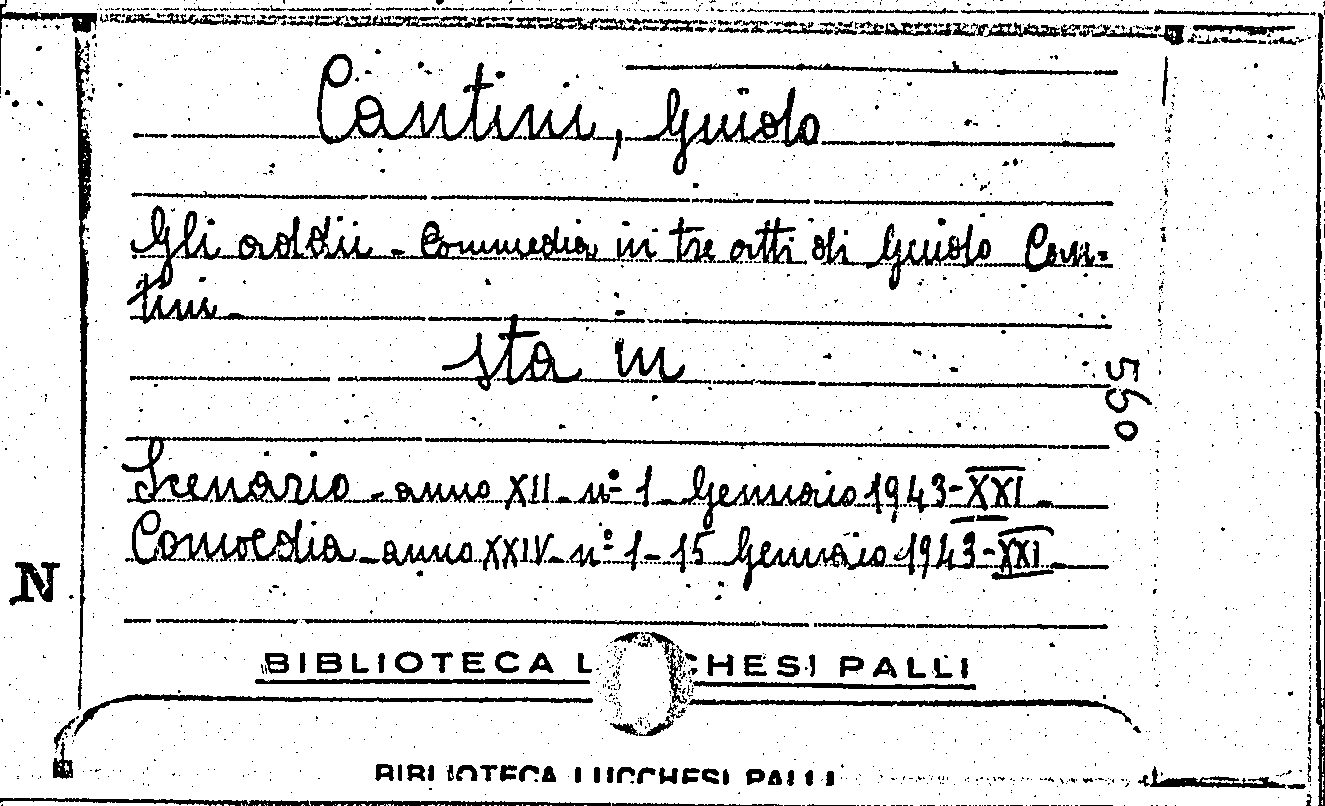 Cantini, Guido
Gli addii - Commedia in tre atti di Guido Can=
tini -
sta in
560
Scenario - anno XII - n° 1 - Gennaio 1943 - XXI -
Comoedia - anno XXIV - n° 1 - 15 Gennaio 1943 - XXI -
N
BIBLIOTECA L CHESI PALLI
BIBLIOTECA LUCCHESI PALLI